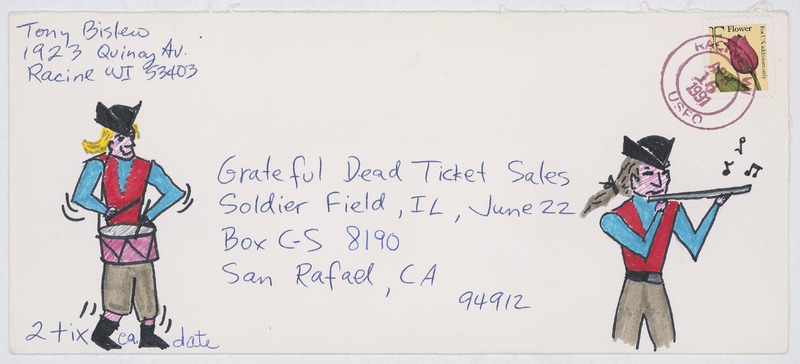 Tony Bislew
1923 Quincy Av.
Racine WI 53403
F Flower
For U.S. addresses only
RACINE WI
APR
16
1991
USPO
Grateful Dead Ticket Sales
Soldier Field, IL, June 22
Box C-S 8190
San Rafael, CA
94912
2 tix ea. date